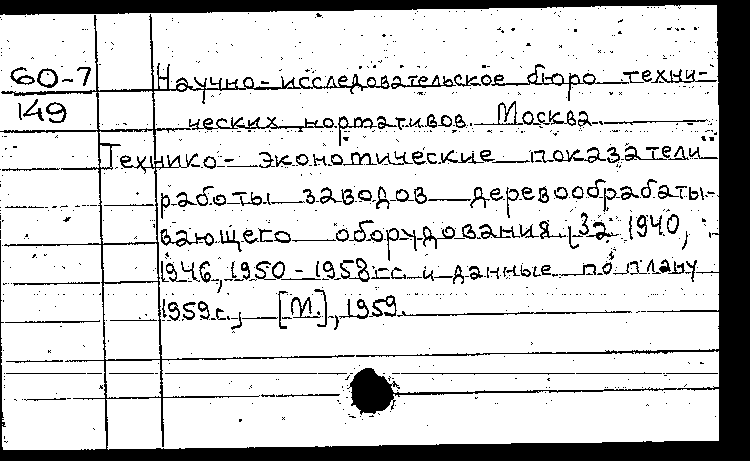 60-7
149
Научно-исследовательское бюро техни-
ческих нормативов. Москва.
Технико-экономические показатели
работы заводов деревообрабаты-
вающего оборудования [За 1940,
1946, 1950-1958 гг. и данные по плану
1959 г.] [М.], 1959.